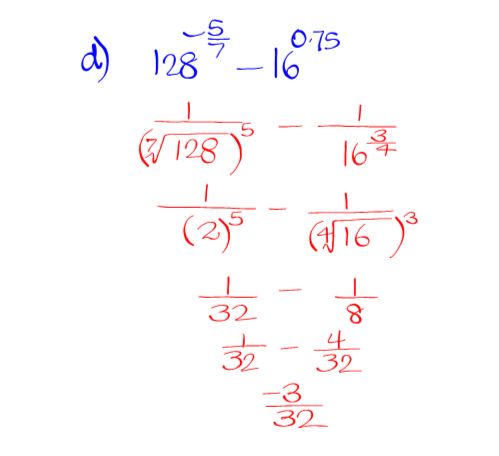 d) 128^(-5/7) - 16^0.75
1/(⁷√128)^5 - 1/16^(3/4)
1/(2)^5 - 1/(⁴√16)^3
1/32 - 1/8
1/32 - 4/32
-3/32